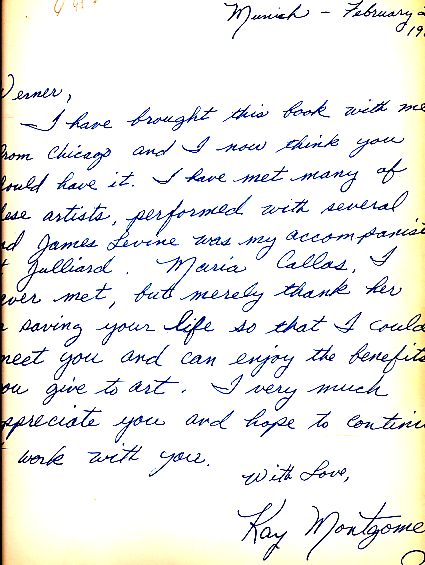 Munich - February 2
19
erner,
I have brought this book with me
rom Chicago and I now think you
ould have it. I have met many of
ese artists, performed with several
nd James Levine was my accompanist
t Juilliard. Maria Callas, I
ever met, but merely thank her
r saving your life so that I could
meet you and can enjoy the benefits
ou give to art. I very much
ppreciate you and hope to continu
work with you.
With Love,
Kay Montgome